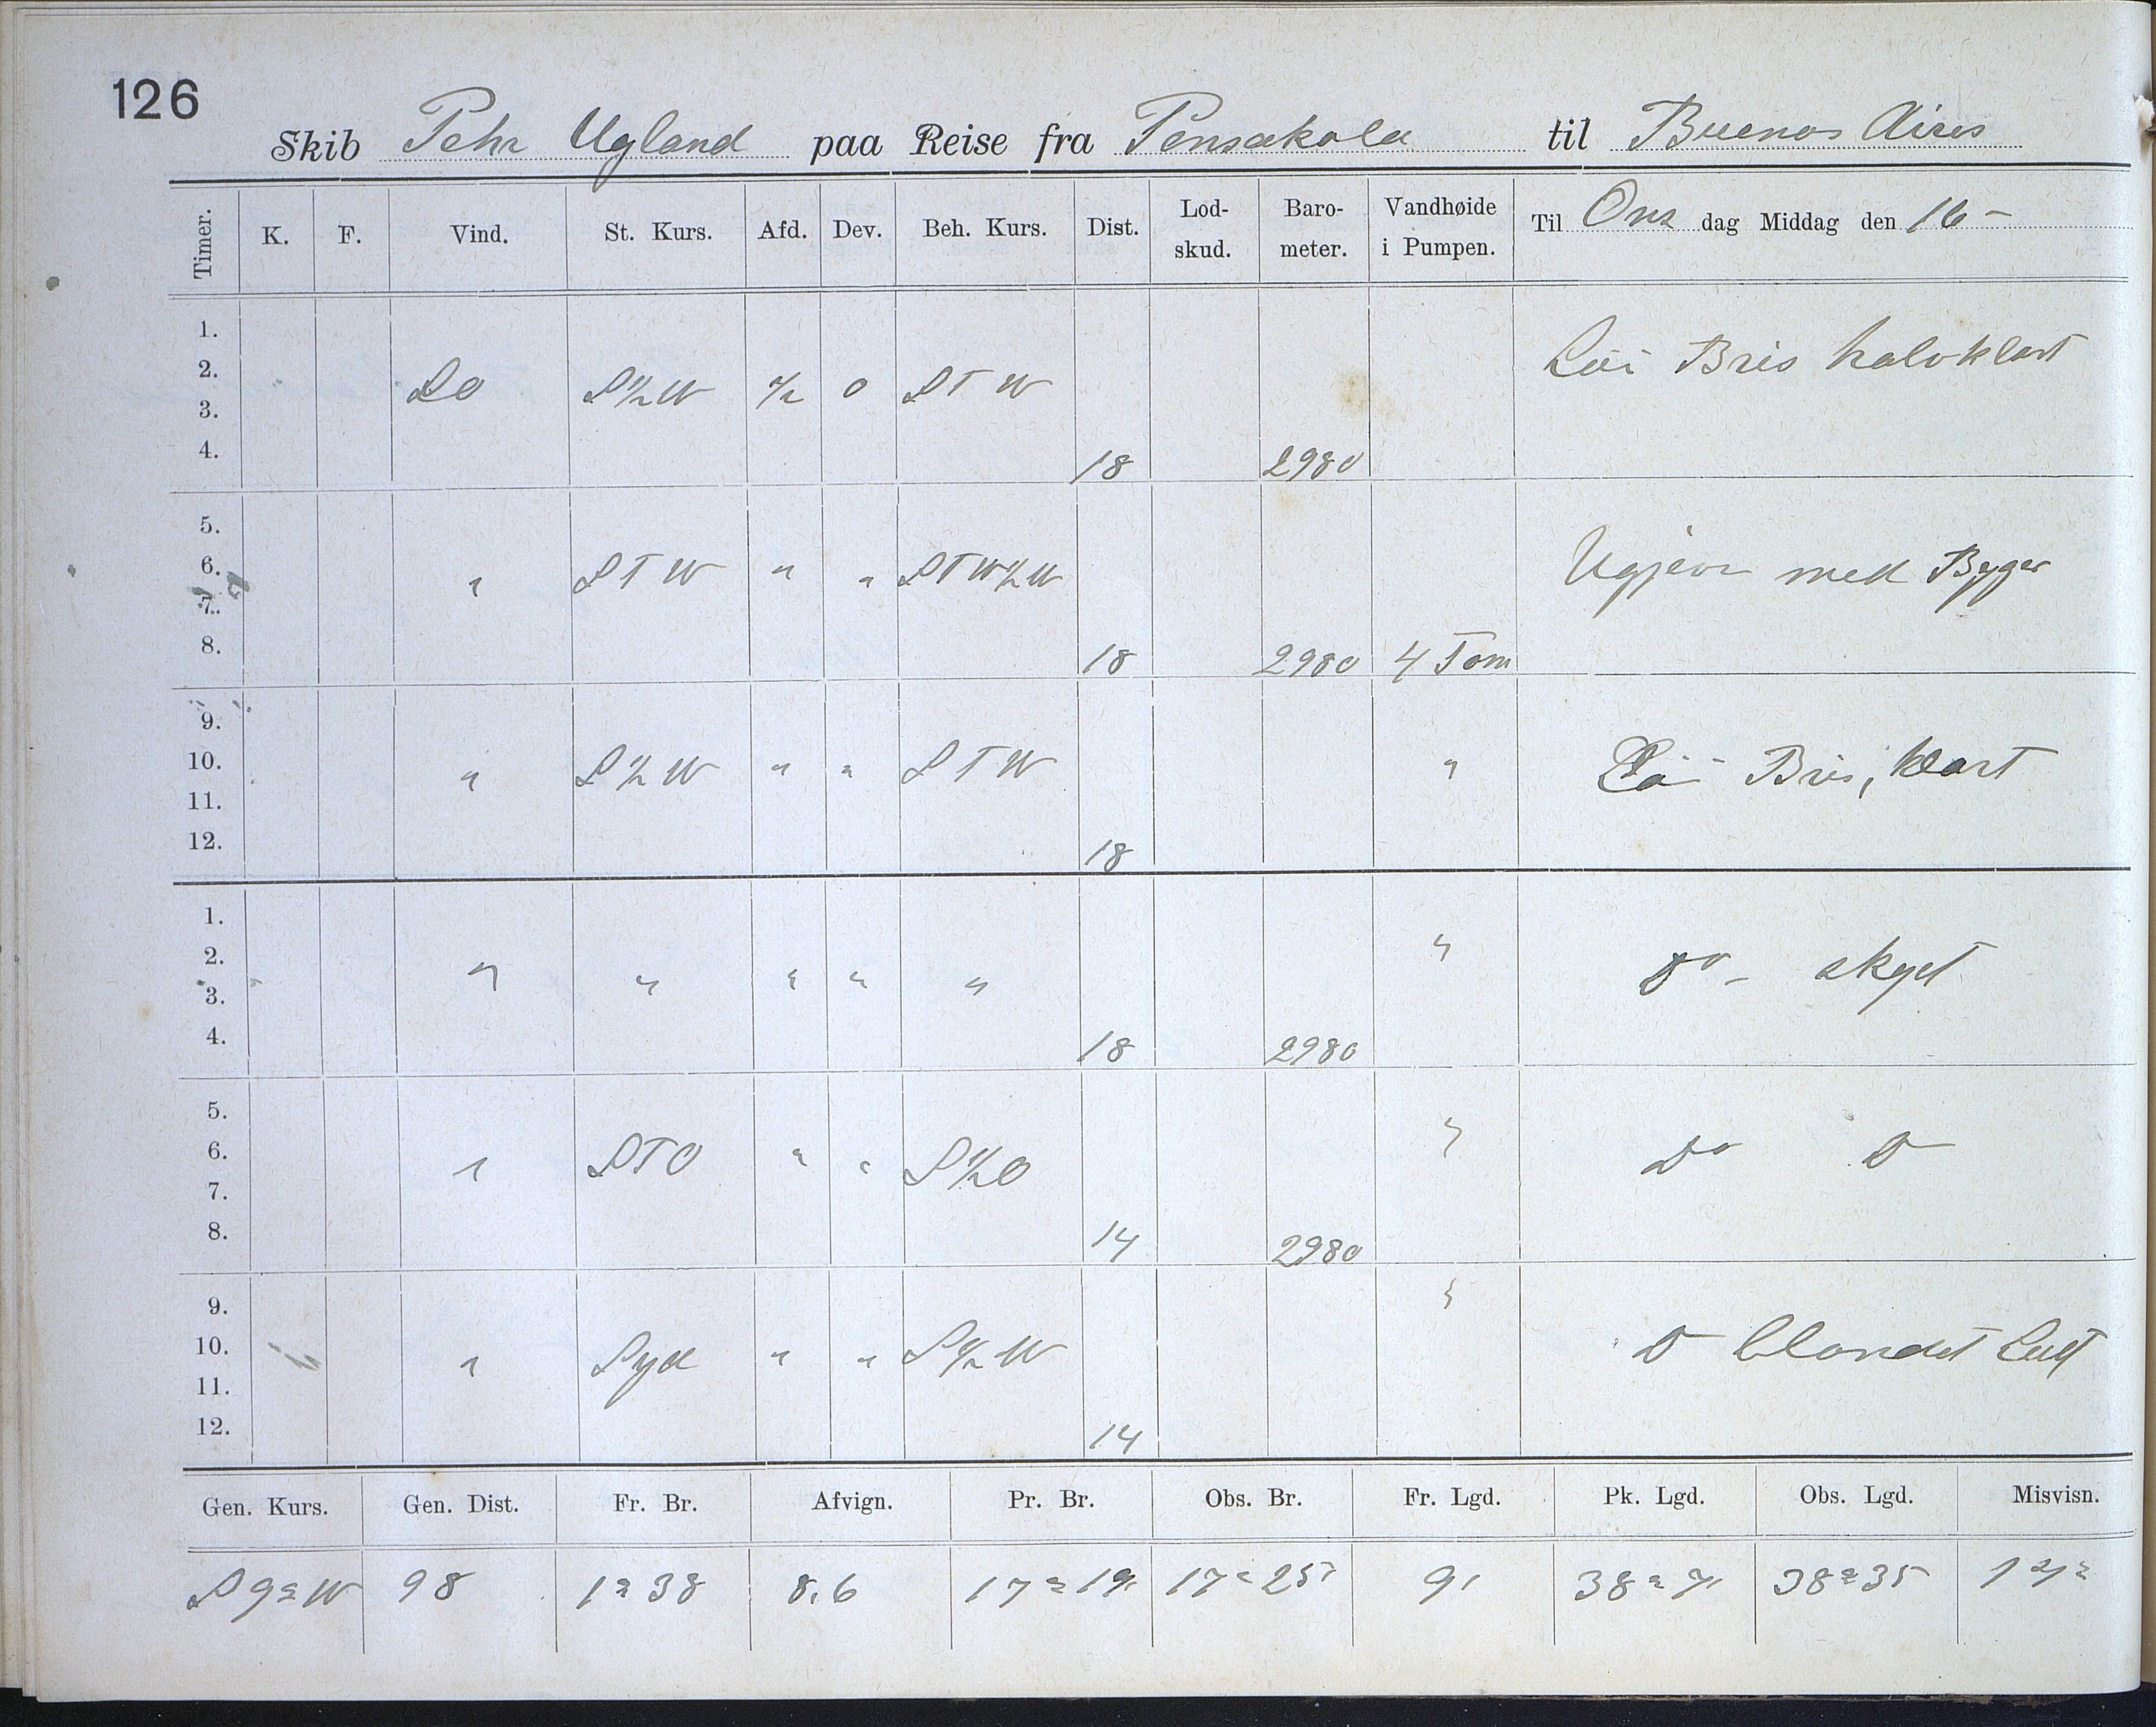 126
Skib Pehr Ugland paa Reise fra Pensakola til Buenos Aires
Timer. K. F. Vind. St. Kurs. Afd. Dev. Beh. Kurs. Dist. Lod-skud. Baro-meter. Vandhøide i Pumpen. Til Ons dag Middag den 16 -
1.
2. Bris halvklart
3. SO S½W ½ 0 STW
4. 18 2980
5.
6. " STW " " STW½W Ugjevn med Byger
7.
8. 18 2980 4 Tom
9.
10. " S½W " " STW " Bris, klart
11.
12. 18
1.
2. " " " " " " Do - skyet
3.
4. 18 2980
5.
6. " STO " " S½O " Do D
7.
8. 14 2980
9. "
10. " Syd " " S½W D blandet Luft
11.
12. 14
Gen. Kurs. Gen. Dist. Fr. Br. Afvign. Pr. Br. Obs. Br. Fr. Lgd. Pk. Lgd. Obs. Lgd. Misvisn.
S 9° W 98 1° 38 8,6 17° 19, 17° 25' 9' 38° 38° 35